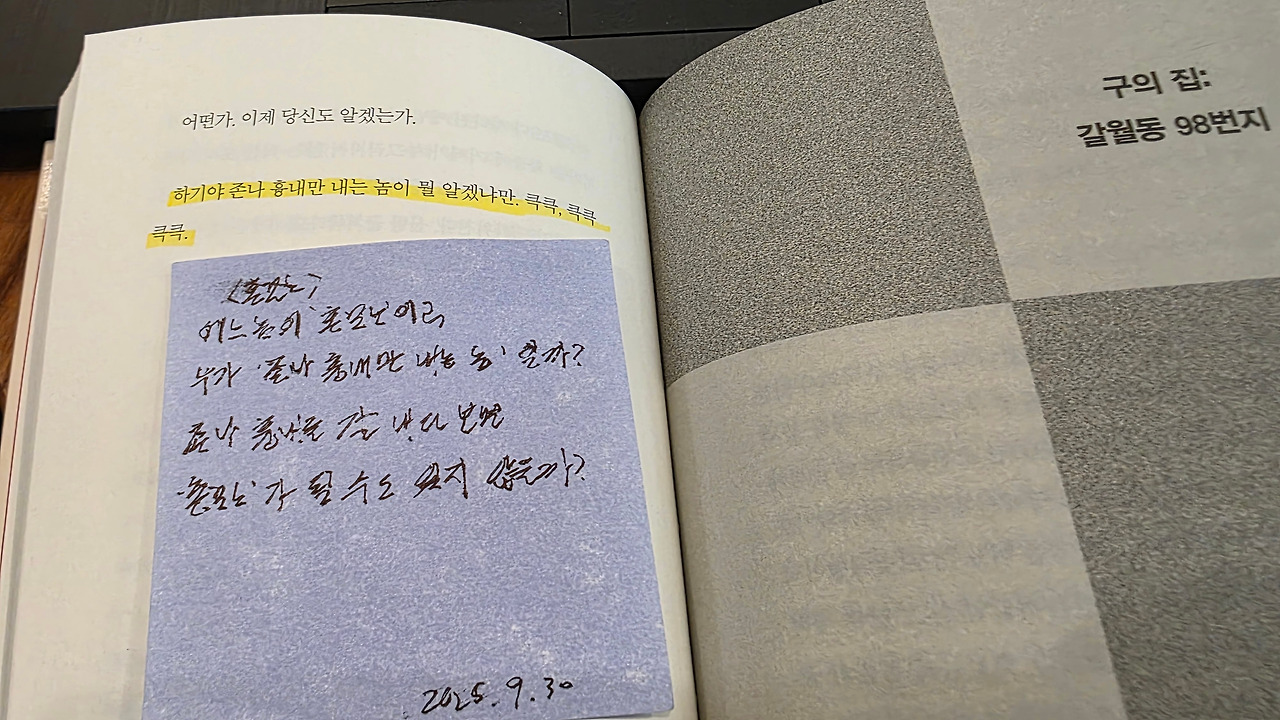 어떤가. 이제 당신도 알겠는가.
하기야 존나 흉내만 내는 놈이 뭘 알겠냐만. 큭큭, 큭큭
큭큭.
<혼모노>
어느 놈이 '혼모노'이고,
누가 '존나 흉내만 내는 놈'일까?
존나 흉내를 잘 내다 보면
'혼모노'가 될 수도 있지 않을까?
2025. 9. 30
구의 집:
갈월동 98번지